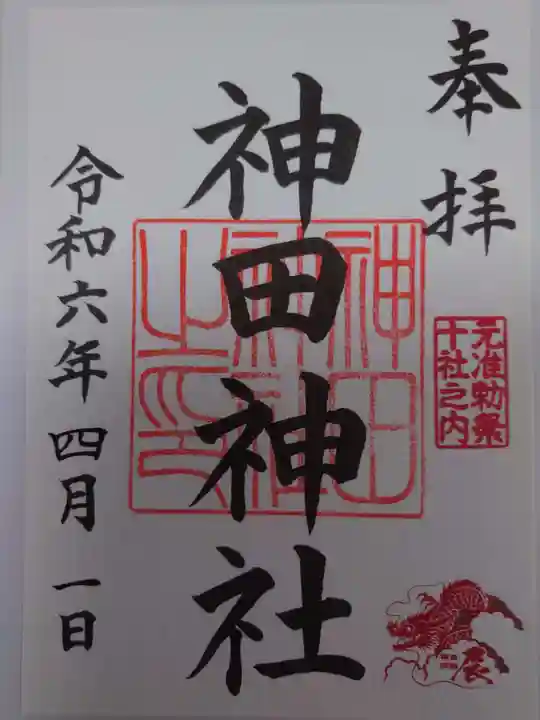 奉拝
元准勅祭
十社之内
辰
神田神社
神田
神社
之印
令和六年四月一日